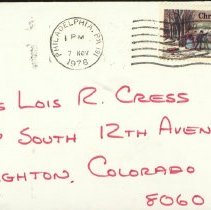 PHILADELPHIA, PA 191
1 PM
7 NOV
1976
Chr
s Lois R. Cress
South 12th Aven
ghton, Colorado
8060